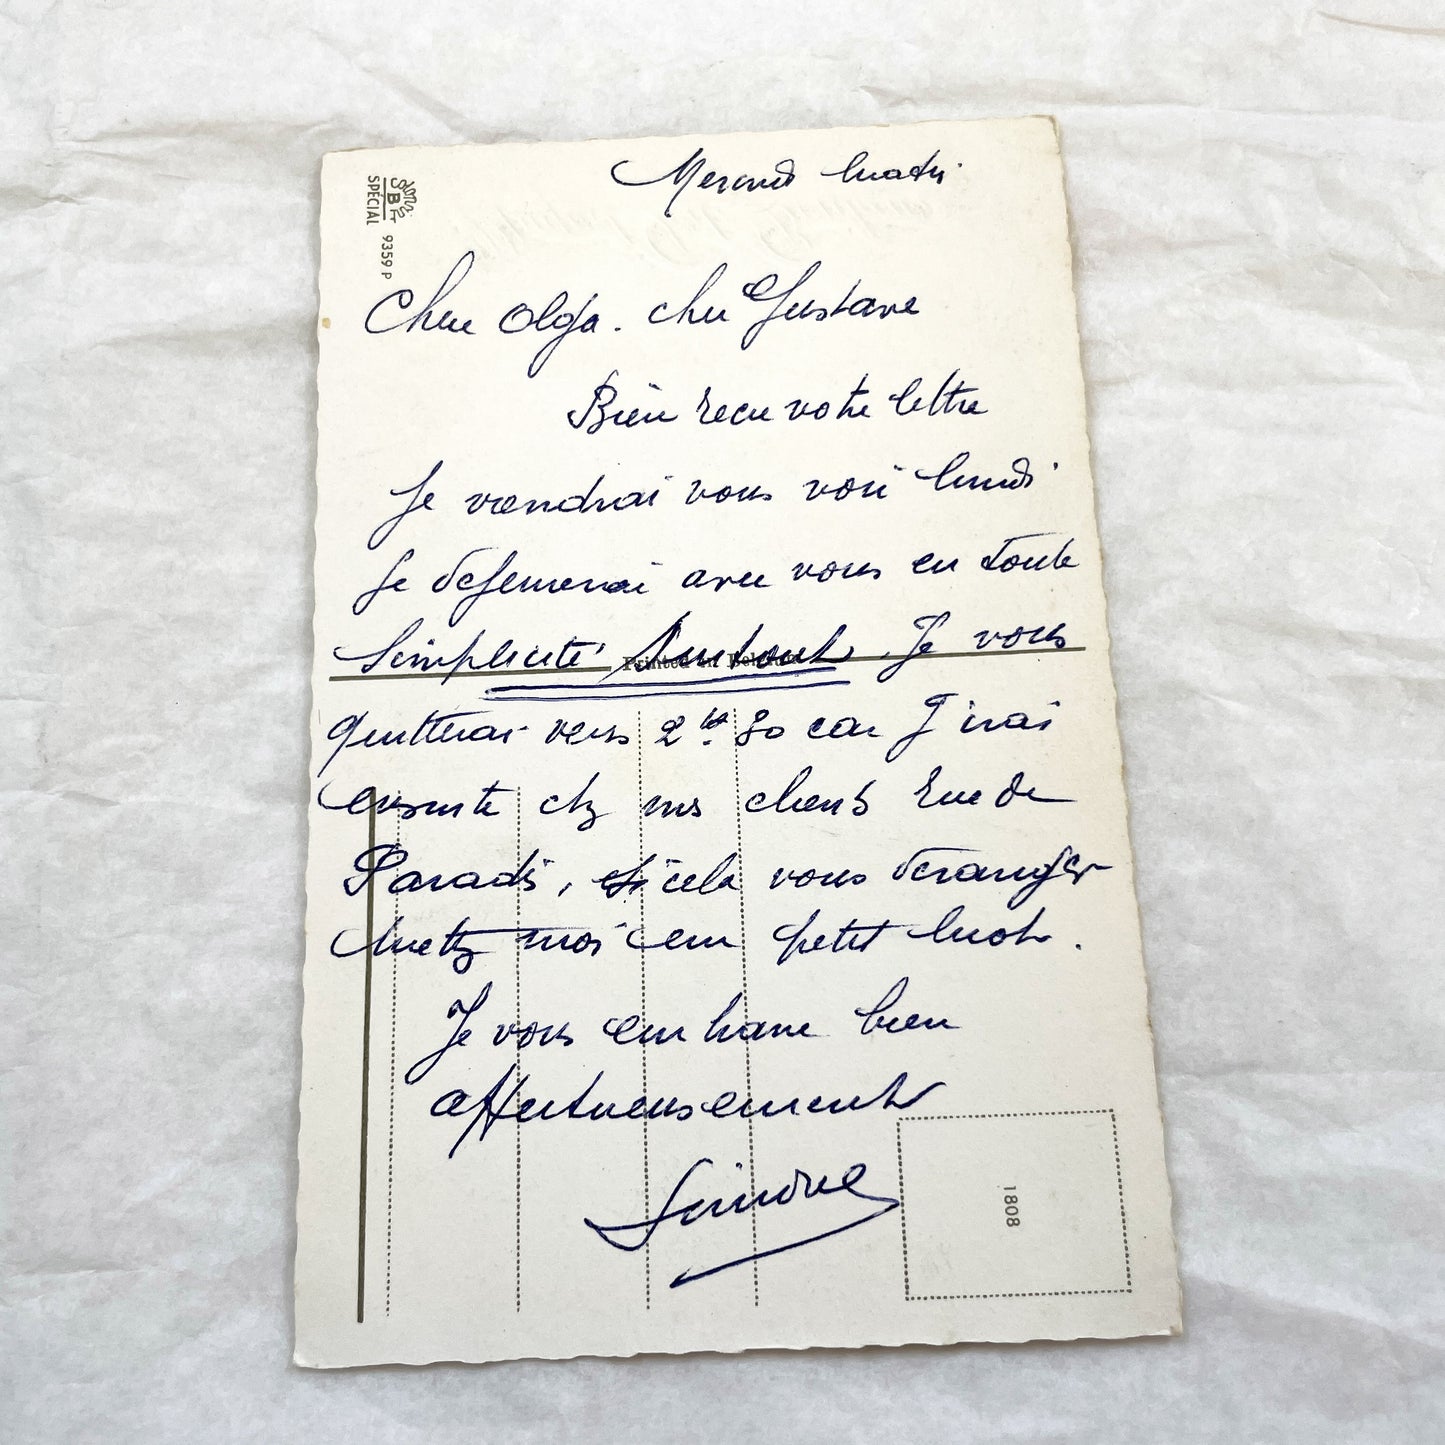 Mercredi matin
Chère Olga. cher Gustave
Bien reçu votre lettre
Je viendrai vous voir lundi
Je déjeunerai avec vous en toute
simplicité surtout. Je vous
Printed in Belgium
quitterai vers 2 hes 30 car j'irai
ensuite chz mes clients rue de
Paradis, si cela vous déranger
mettez moi un petit mot.
Je vous embrasse bien
affectueusement
Simone
SPÉCIAL
9359 P
1808